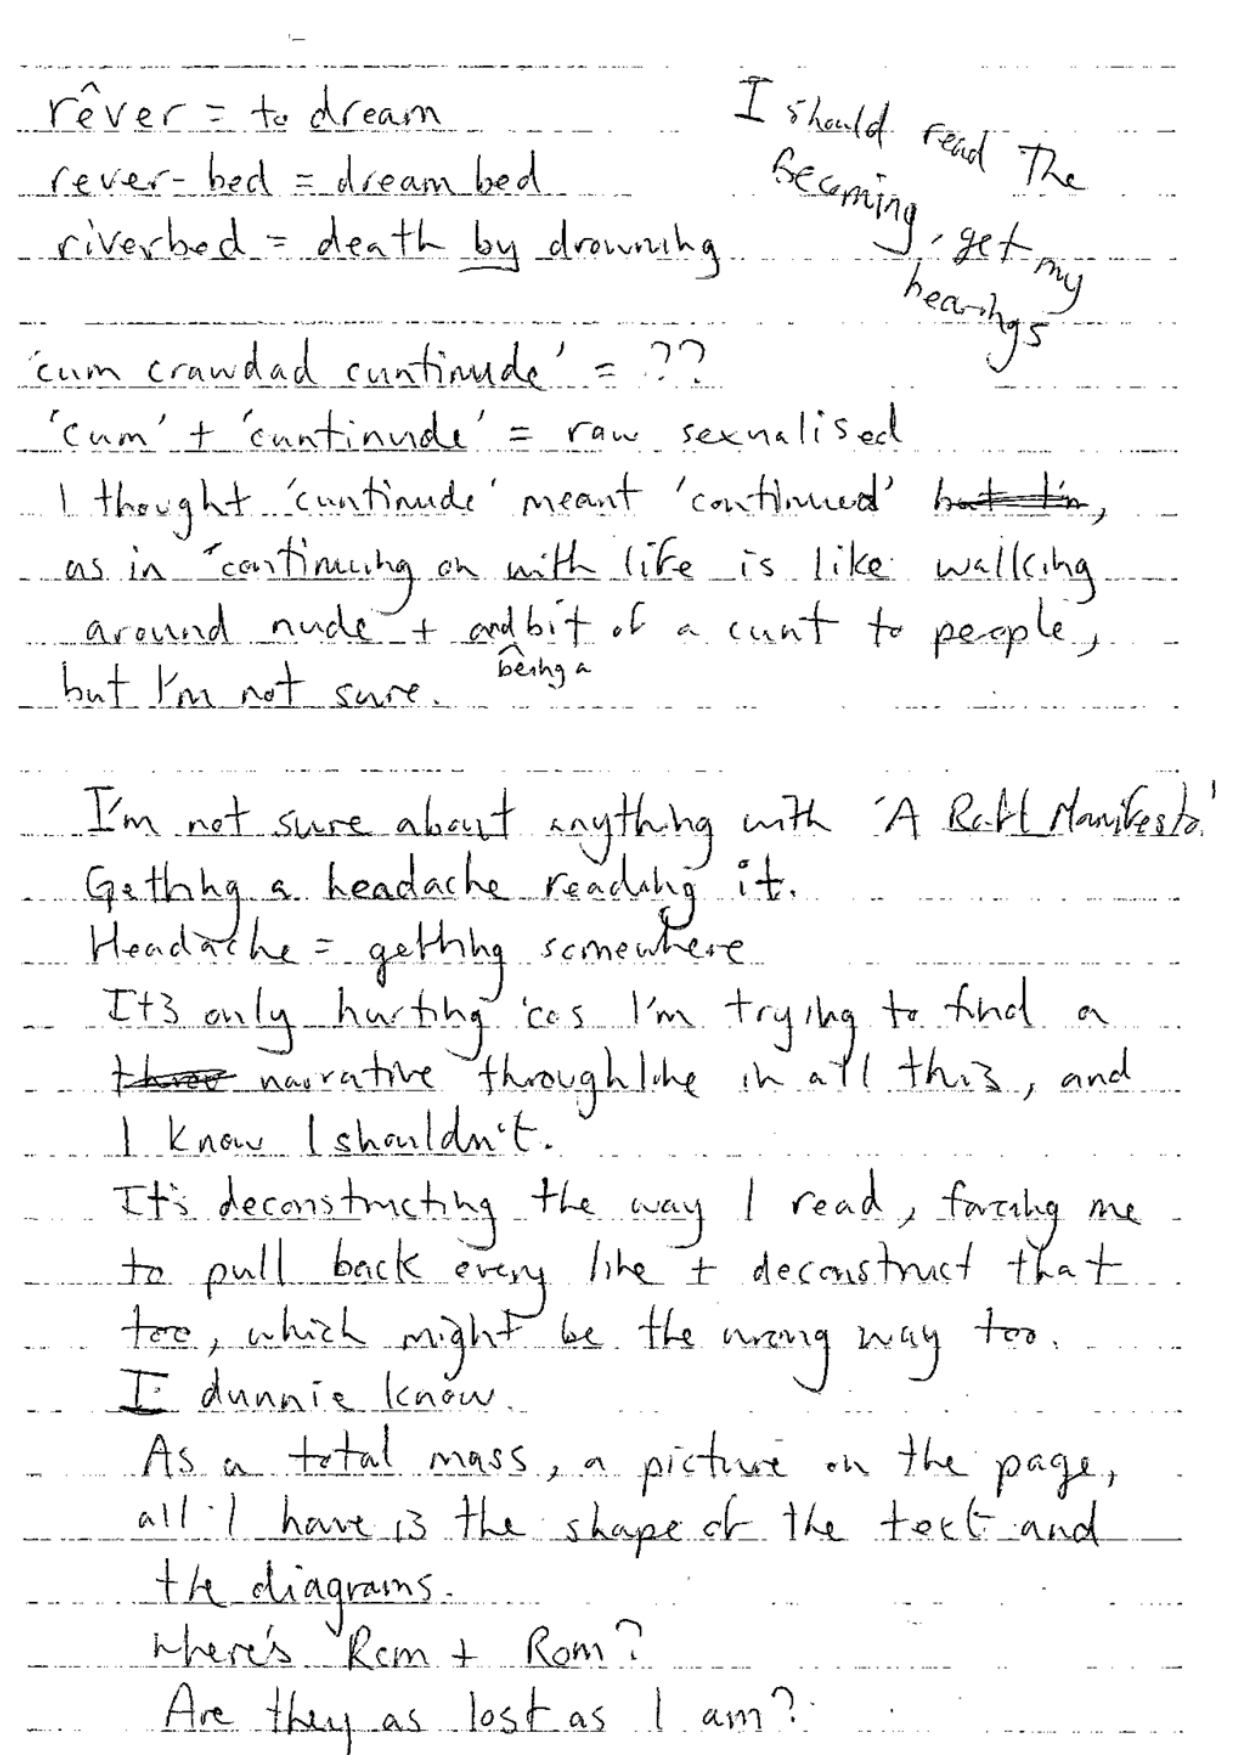 rêver = to dream
rever-bed = dream bed
riverbed = death by drowning
I should read The
Becoming, get my
bearings
'cum crawdad cuntinude' = ??
'cum' + 'cuntinude' = raw sexualised
I thought 'cuntinude' meant 'continued' but I'm,
as in 'continuing on with life is like walking
around nude + and bit of a cunt to people,
being a
but I'm not sure.
I'm not sure about anything with 'A Raft Manifesto'
Getting a headache reading it.
Headache = getting somewhere
It's only hurting 'cos I'm trying to find a
narrative throughline in all this, and
I know I shouldn't.
It's deconstructing the way I read, forcing me
to pull back every line + deconstruct that
too, which might be the wrong way too.
I dunnie know.
As a total mass, a picture on the page,
all I have is the shape of the text and
the diagrams.
Where's Rem + Rom?
Are they as lost as I am?